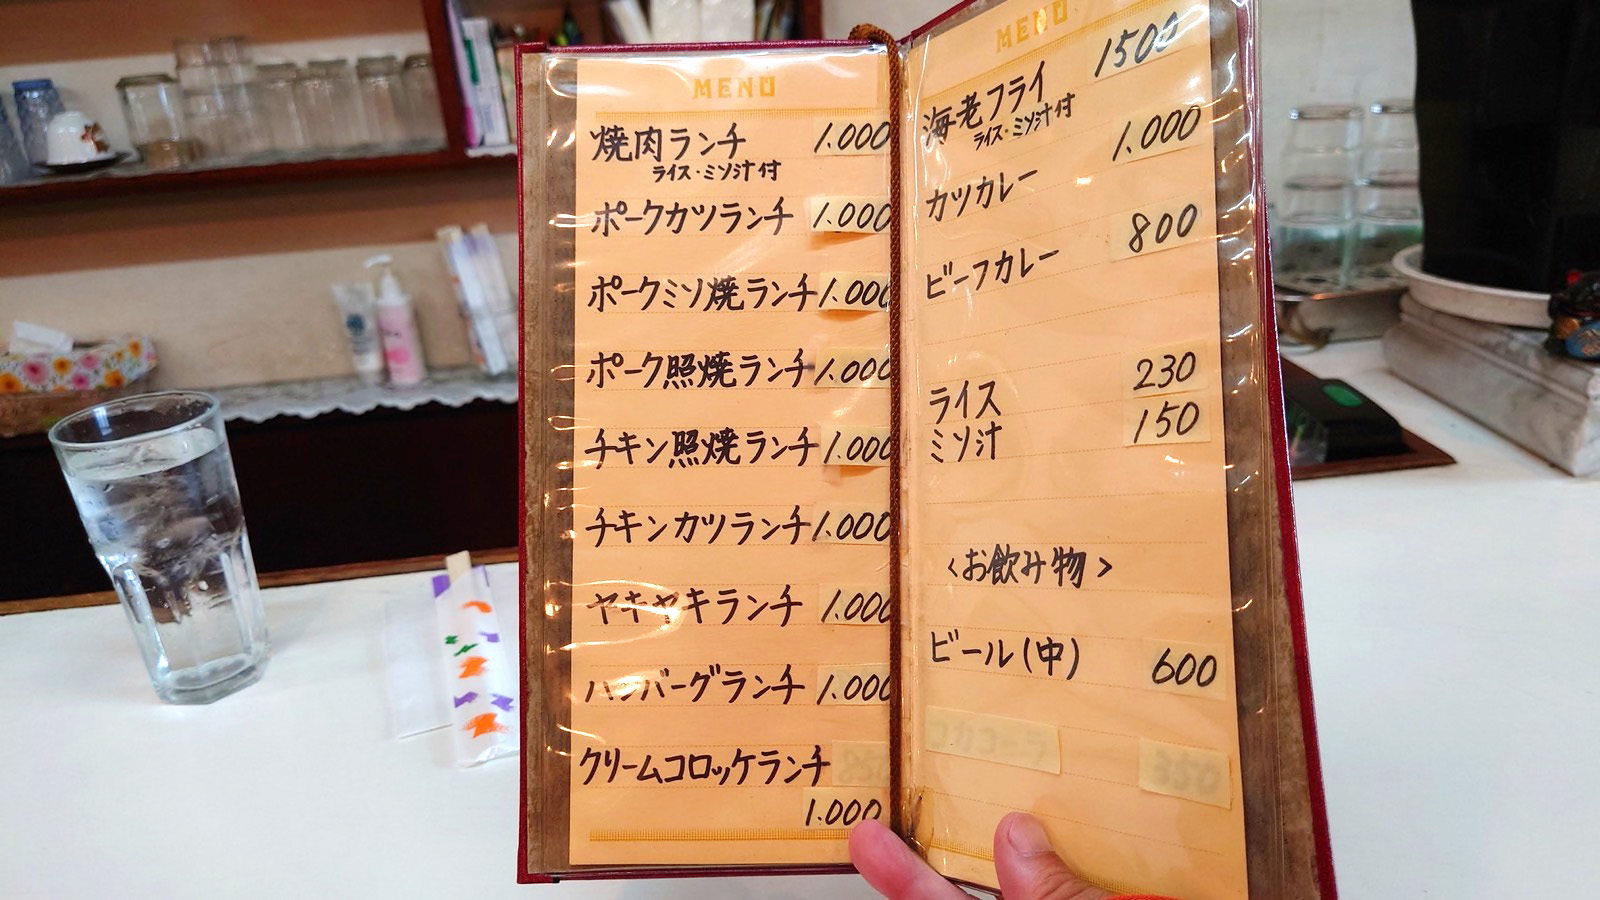 MENU
焼肉ランチ 1.000
ライス・ミソ汁付
ポークカツランチ 1.000
ポークミソ焼ランチ 1.000
ポーク照焼ランチ 1.000
チキン照焼ランチ 1.000
チキンカツランチ 1.000
ヤキヤキランチ 1.000
ハンバーグランチ 1.000
クリームコロッケランチ
1.000
MENU
海老フライ 1500
ライス・ミソ汁付
カツカレー 1.000
ビーフカレー 800
ライス 230
ミソ汁 150
<お飲み物>
ビール(中) 600